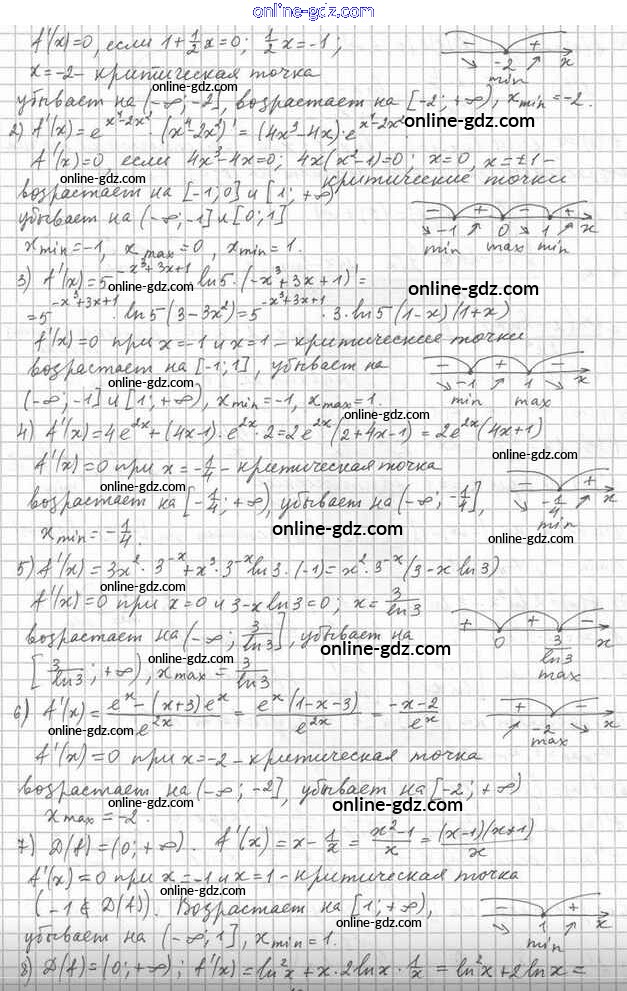 online-gdz.com
f'(x)=0, если 1+1/2x=0; 1/2x=-1;
x=-2- критическая точка
убывает на (-∞;-2], возрастает на [-2;+∞), x min=-2.
- + -2 min x
2) f'(x)=e^(x⁴-2x²)·(x⁴-2x²)'=(4x³-4x)·e^(x⁴-2x²).
online-gdz.com
f'(x)=0, если 4x³-4x=0; 4x(x²-1)=0; x=0, x=±1-
online-gdz.com
критические точки
возрастает на [-1;0] и [1;+∞)
online-gdz.com
убывает на (-∞;-1] и [0;1]
x min=-1, x max=0, x min=1.
- + - + -1 0 1 x
min max min
online-gdz.com
3) f'(x)=5^(-x³+3x+1)·ln5·(-x³+3x+1)'=
online-gdz.com online-gdz.com
=5^(-x³+3x+1)·ln5(3-3x²)=5^(-x³+3x+1)·3·ln5(1-x)(1+x)
f'(x)=0 при x=-1 и x=1-критические точки
возрастает на [-1;1], убывает на
online-gdz.com
(-∞;-1] и [1;+∞), x min=-1, x max=1.
- + - -1 1 x
min max
online-gdz.com
4) f'(x)=4e^(2x)+(4x-1)·e^(2x)·2=2e^(2x)(2+4x-1)=2e^(2x)(4x+1)
online-gdz.com
f'(x)=0 при x=-1/4-критическая точка
возрастает на [-1/4;+∞), убывает на (-∞;-1/4],
online-gdz.com
x min=-1/4.
- + -1/4 x
min
online-gdz.com
online-gdz.com
5) f'(x)=3x²·3^(-x)+x³·3^(-x)ln3·(-1)=x²·3^(-x)(3-x ln3)
online-gdz.com
f'(x)=0 при x=0 и 3-x ln3=0; x=3/ln3
возрастает на (-∞; 3/ln3], убывает на
online-gdz.com online-gdz.com
[3/ln3;+∞), x max=3/ln3
+ + - 0 3/ln3 x
max
6) f'(x)=(e^x-(x+3)e^x)/e^(2x)=(e^x(1-x-3))/e^(2x)=(-x-2)/e^x
online-gdz.com
+ - -2 x
max
f'(x)=0 при x=-2-критическая точка
возрастает на (-∞;-2], убывает на [-2;+∞)
online-gdz.com online-gdz.com
x max=-2.
7) D(f)=(0;+∞). f'(x)=x-1/x=(x²-1)/x=((x-1)(x+1))/x
f'(x)=0 при x=-1 и x=1-критическая точка
online-gdz.com
(-1∉D(f)). Возрастает на [1;+∞),
online-gdz.com
убывает на (-∞;1], x min=1.
- + 1 x
min
online-gdz.com
8) D(f)=(0;+∞); f'(x)=ln²x+x·2lnx·1/x=ln²x+2lnx=